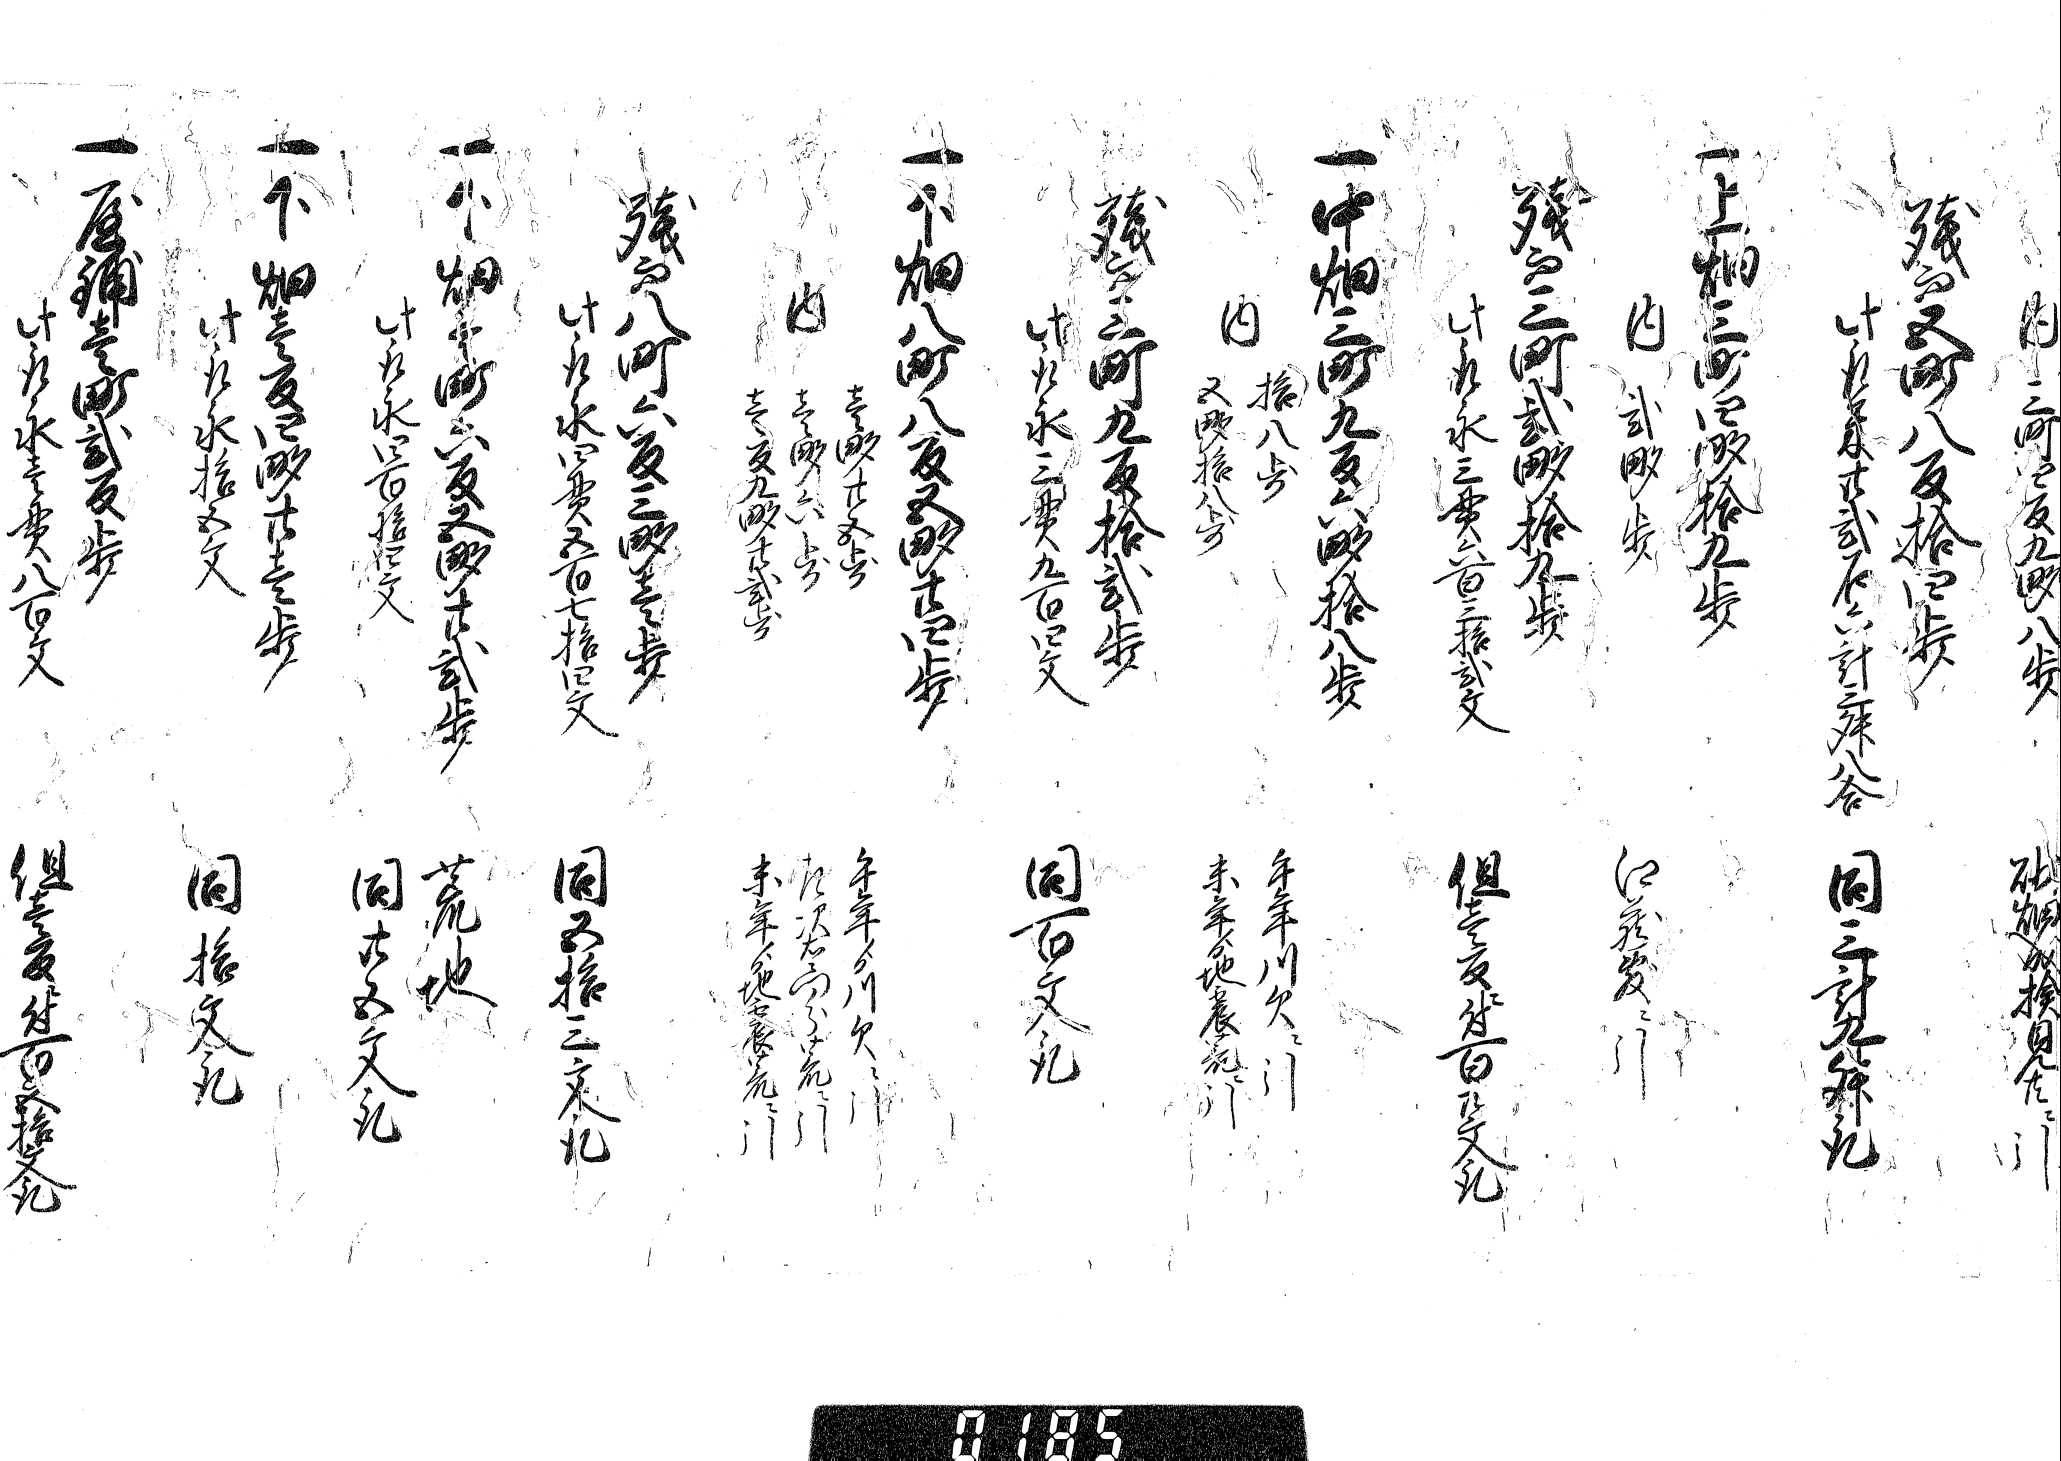 内 三町四反九畝八歩 砂畑成検見〆ニ引
残而五町八反拾四歩
此取米廿弐石六斗三升八合 同三斗九升取
一上畑三町四畝拾九歩
内 弐畝歩 引
残而三町弐畝拾九歩
此取永三貫六百三拾弐文 但壱反ニ付百弐拾文取
一中畑三町九反六畝拾八歩
内 拾八歩 午年川欠ニ引
五畝拾八歩 未年分地震荒ニ引
残而三町九反拾弐歩
此取永三貫九百四文 同百文取
一下畑八町八反五畝廿四歩
壱畝廿五歩 午年分川欠ニ引
内 壱畝六歩 荒ニ引
壱反九畝廿弐歩 未年分地震荒ニ引
残而八町六反三畝壱歩
此取永四貫五百七拾四文 同五拾三文取
一下畑壱町六反五畝廿弐歩 荒地
此取永四百拾四文 同廿五文取
一下畑壱反四畝廿壱歩
此取永拾五文 同拾文取
一屋鋪壱町弐反歩
此取永壱貫八百文 但壱反ニ付百五拾文取
0185